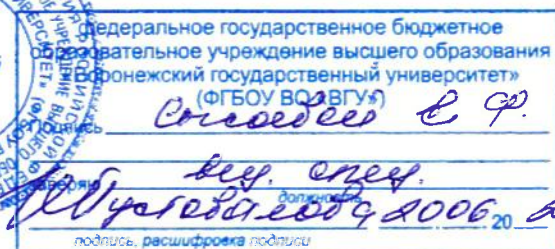 федеральное государственное бюджетное
образовательное учреждение высшего образования
«Воронежский государственный университет»
(ФГБОУ ВО «ВГУ»)
Подпись Е. Ф.
Заверяю вед. спец.
должность
Пустовалова 2006 20 2
подпись, расшифровка подписи